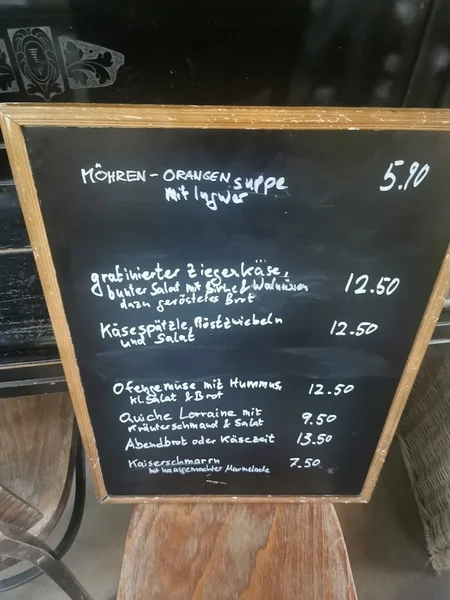 MÖHREN - ORANGENsuppe 5.90
mit Ingwer
gratinierter Ziegenkäse, 12.50
bunter Salat mit Birne & Walnüssen
dazu geröstetes Brot
Käsespätzle, Röstzwiebeln 12.50
und Salat
Ofengemüse mit Hummus, 12.50
kl. Salat & Brot
Quiche Lorraine mit 9.50
Kräuterschmand & Salat
Abendbrot oder Käsezeit 13.50
Kaiserschmarrn 7.50
mit hausgemachter Marmelade